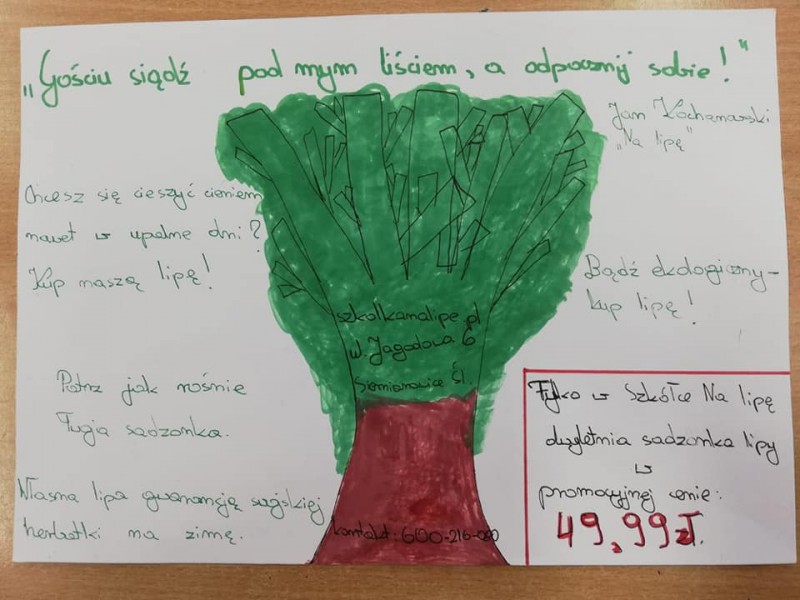 „Gościu siądź pod mym liściem, a odpocznij sobie!”
Jan Kochanowski
„Na lipę”
Chcesz się cieszyć cieniem
nawet w upalne dni?
Kup naszą lipę!
Bądź ekologiczny-
kup lipę!
szkolkanalipe.pl
ul. Jagodowa 6
Siemianowice Śl.
Patrz jak rośnie
Twoja sadzonka.
Własna lipa gwarancją swojskiej
herbatki na zimę.
kontakt: 600-216-000
Tylko w Szkółce Na lipę
dwuletnia sadzonka lipy
w
promocyjnej cenie:
49,99zł.